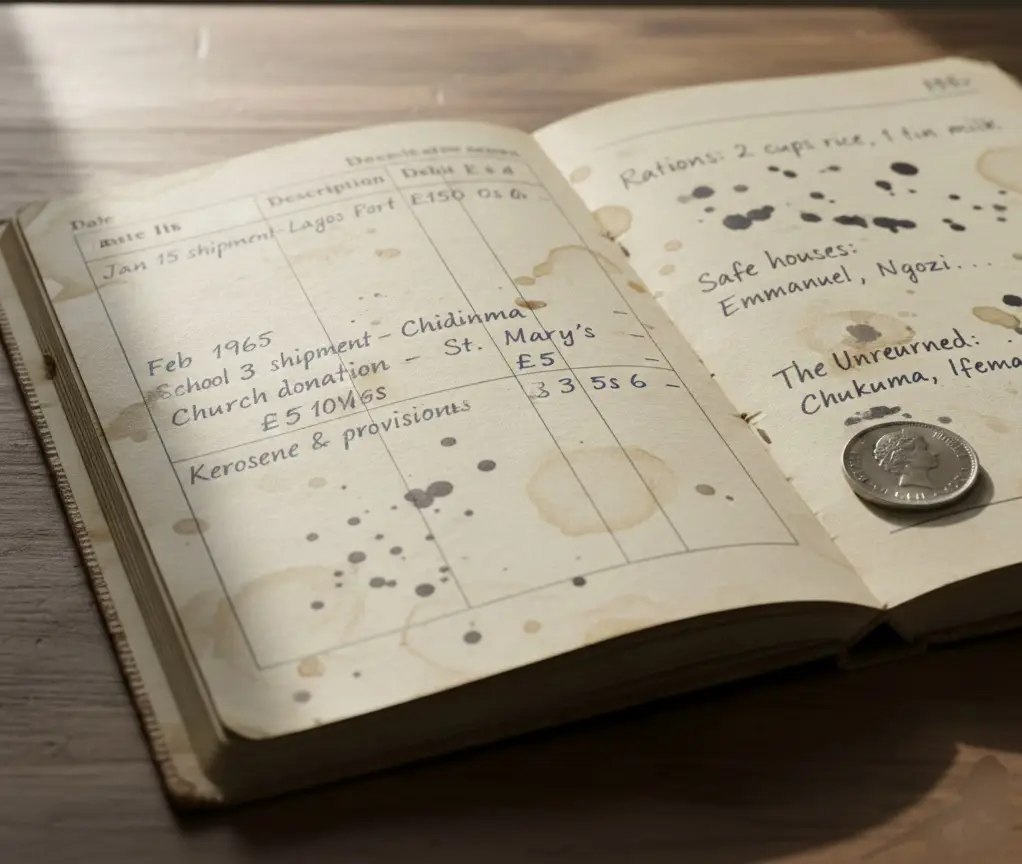 Date
Description
Debit £ s d
Jan 15 shipment-Lagos Port £150 0s
Feb 1965
School 3 shipment - Chidinma -
Church donation - St. Mary's -
£5 10 £5 -
Kerosene & provisions 3 3 5s 6 -
Rations: 2 cups rice, 1 tin milk
Safe houses:
Emmanuel, Ngozi...
The Unreurned:
Chukuma, Ifema